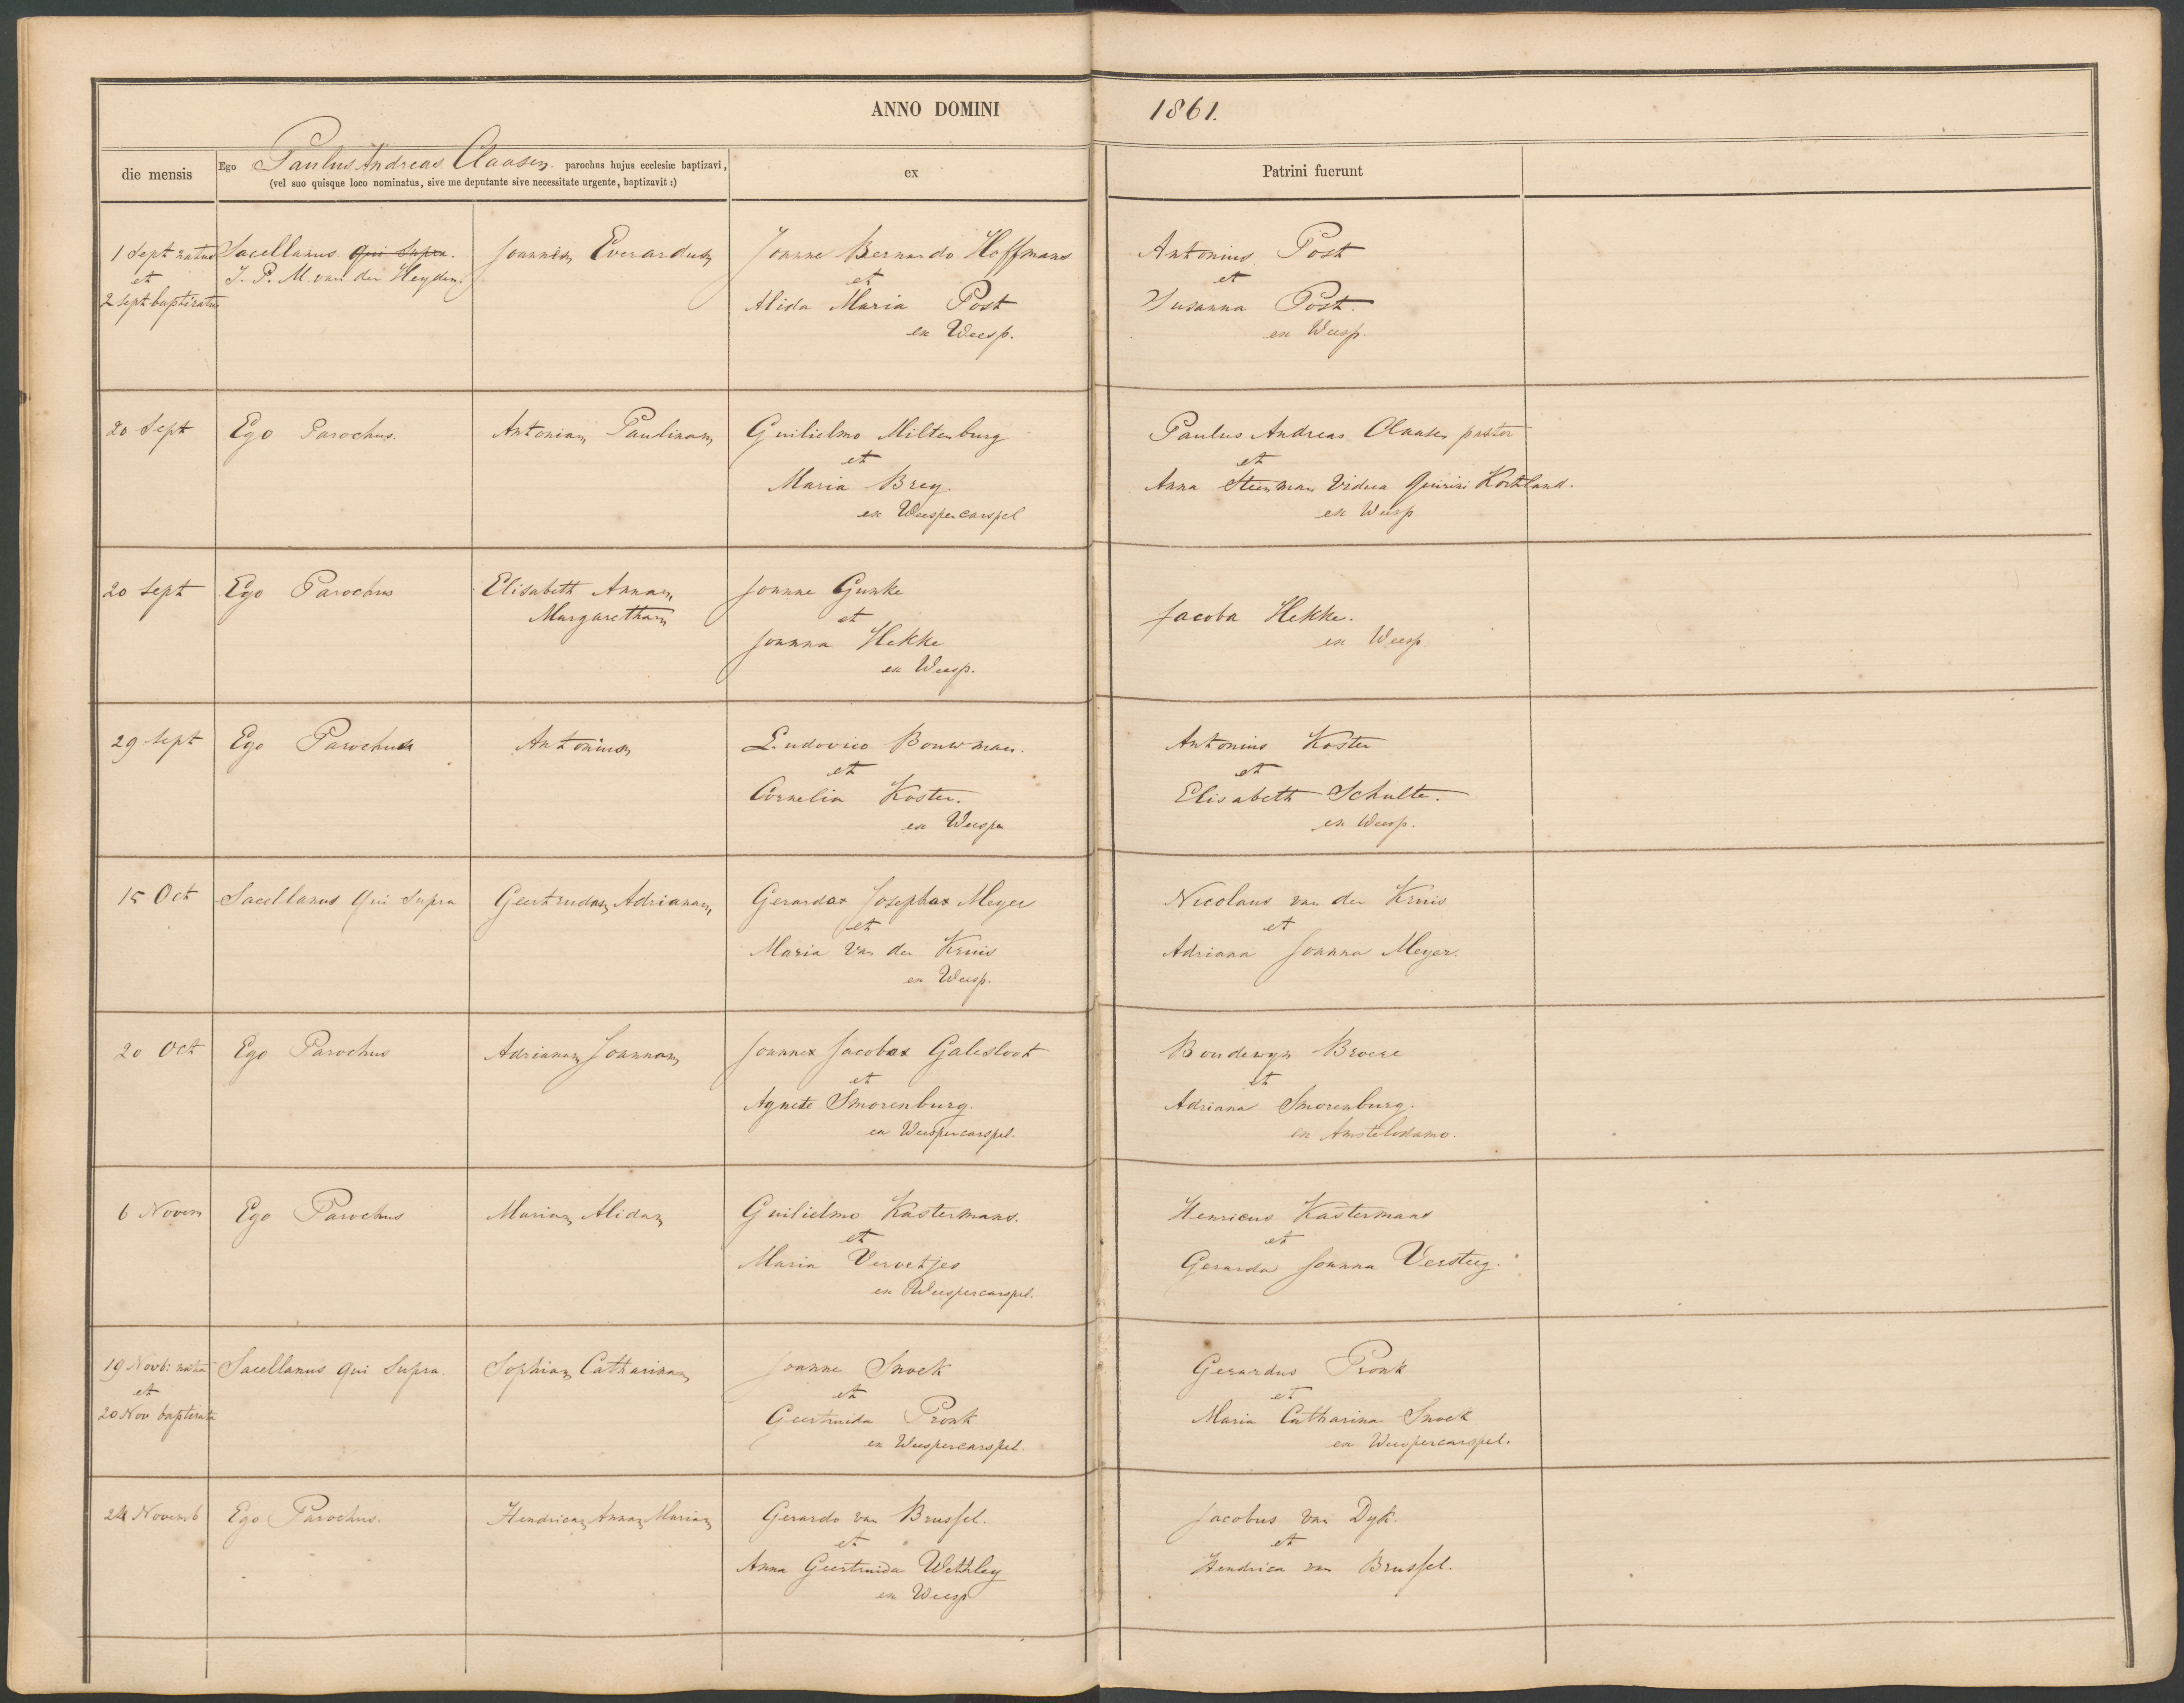 ANNO DOMINI 1861.
die mensis
Ego Paulus Andreas Claasen parochus hujus ecclesiæ baptizavi,
(vel suo quisque loco nominatus, sive me deputante sive necessitate urgente, baptizavit:)
ex
Patrini fuerunt
1 Sept natus
et
2 Sept baptizatus
Sacellanus qui Supra.
J. P. M. van der Heyden.
Joannem Everardum
Joanne Bernardo Hoffmans
et
Alida Maria Post
ex Weesp.
Antonius Post
et
Susanna Post.
ex Weesp.
20 Sept
Ego Parochus.
Antoniam Paulinam
Guilielmo Miltenburg
et
Maria Brey.
ex Weespercarspel
Paulus Andreas Claasen pastor
et
Anna Steenman Vidua Quirini Kortland.
ex Weesp
20 Sept
Ego Parochus
Elisabeth Annam
Margaretham
Joanne Gunke
et
Joanna Hekke
ex Weesp.
Jacoba Hekke.
ex Weesp
29 Sept
Ego Parochus
Antonium
Ludovico Bouwman.
et
Cornelia Koster.
ex Weesp
Antonius Koster
et
Elisabeth Schulte.
ex Weesp.
15 Oct
Sacellanus qui Supra
Geertrudam Adrianam
Gerardo Josepho Meyer
et
Maria Van der Kruis
ex Weesp.
Nicolaus van der Kruis
et
Adriana Joanna Meyer.
20 Oct
Ego Parochus
Adrianam Joannam
Joanne Jacobo Galesloot
et
Agnete Smorenburg.
ex Weespercarspel.
Boudewyn Broere
et
Adriana Smorenburg.
ex Amstelodamo.
6 Novem
Ego Parochus
Mariam Alidam
Guilielmo Kastermans.
et
Maria Vervetjes
ex Weespercarspel.
Henricus Kastermans
et
Gerarda Joanna Versteeg.
19 Novb: nata
et
20 Nov baptizata
Sacellanus qui Supra.
Sophiam Catharinam
Joanne Snoek
et
Geertruida Pronk
ex Weespercarspel.
Gerardus Pronk
et
Maria Catharina Snoek
ex Weespercarspel.
24 Novemb
Ego Parochus.
Hendricam Annam Mariam
Gerardo van Brussel.
et
Anna Geertruida Wethley
ex Weesp
Jacobus van Dyk.
et
Hendrica van Brussel.